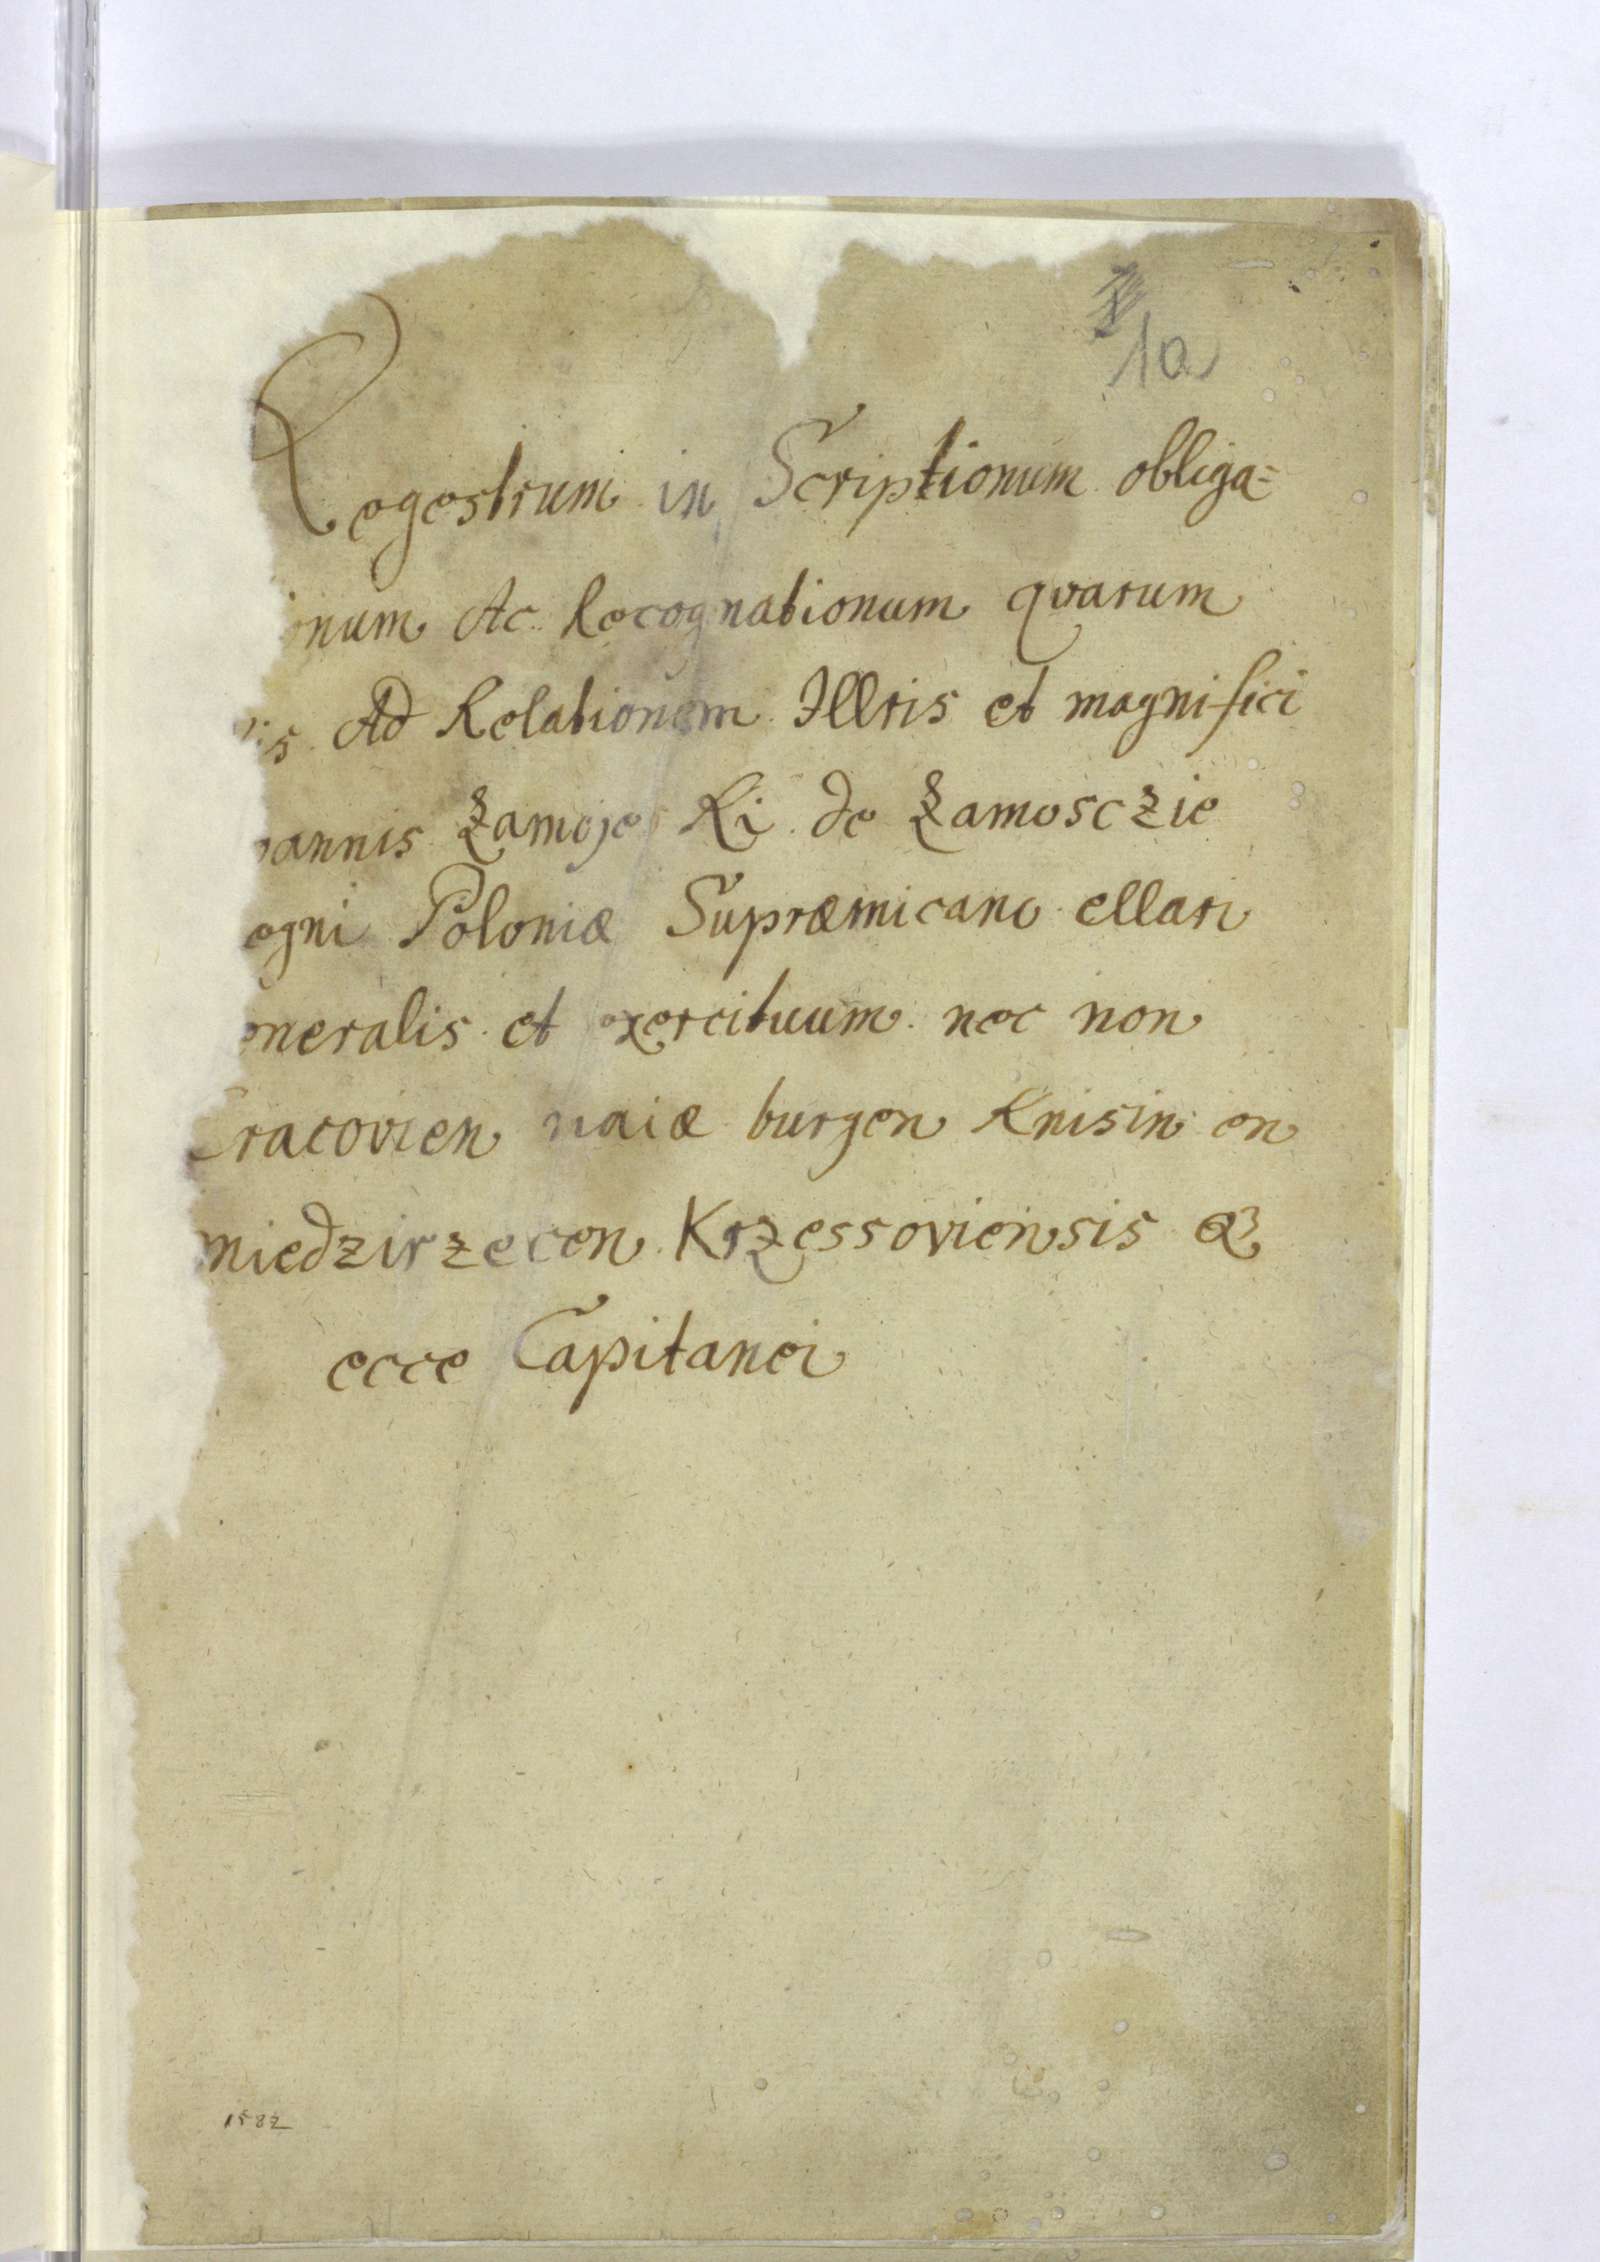 1a
Regestrum in Scriptionum obliga=
onum Ac Recognationum qvarum
is Ad Relationem Illris et magnifici
oannis Zamojes Ki de Zamosczie
egni Poloniæ Supræmicanc ellari
eneralis et exercituum nec non
Cracovien naiæ burgen Knisin en
miedzirzecen Krzessoviensis &
ecce Capitanei
1582